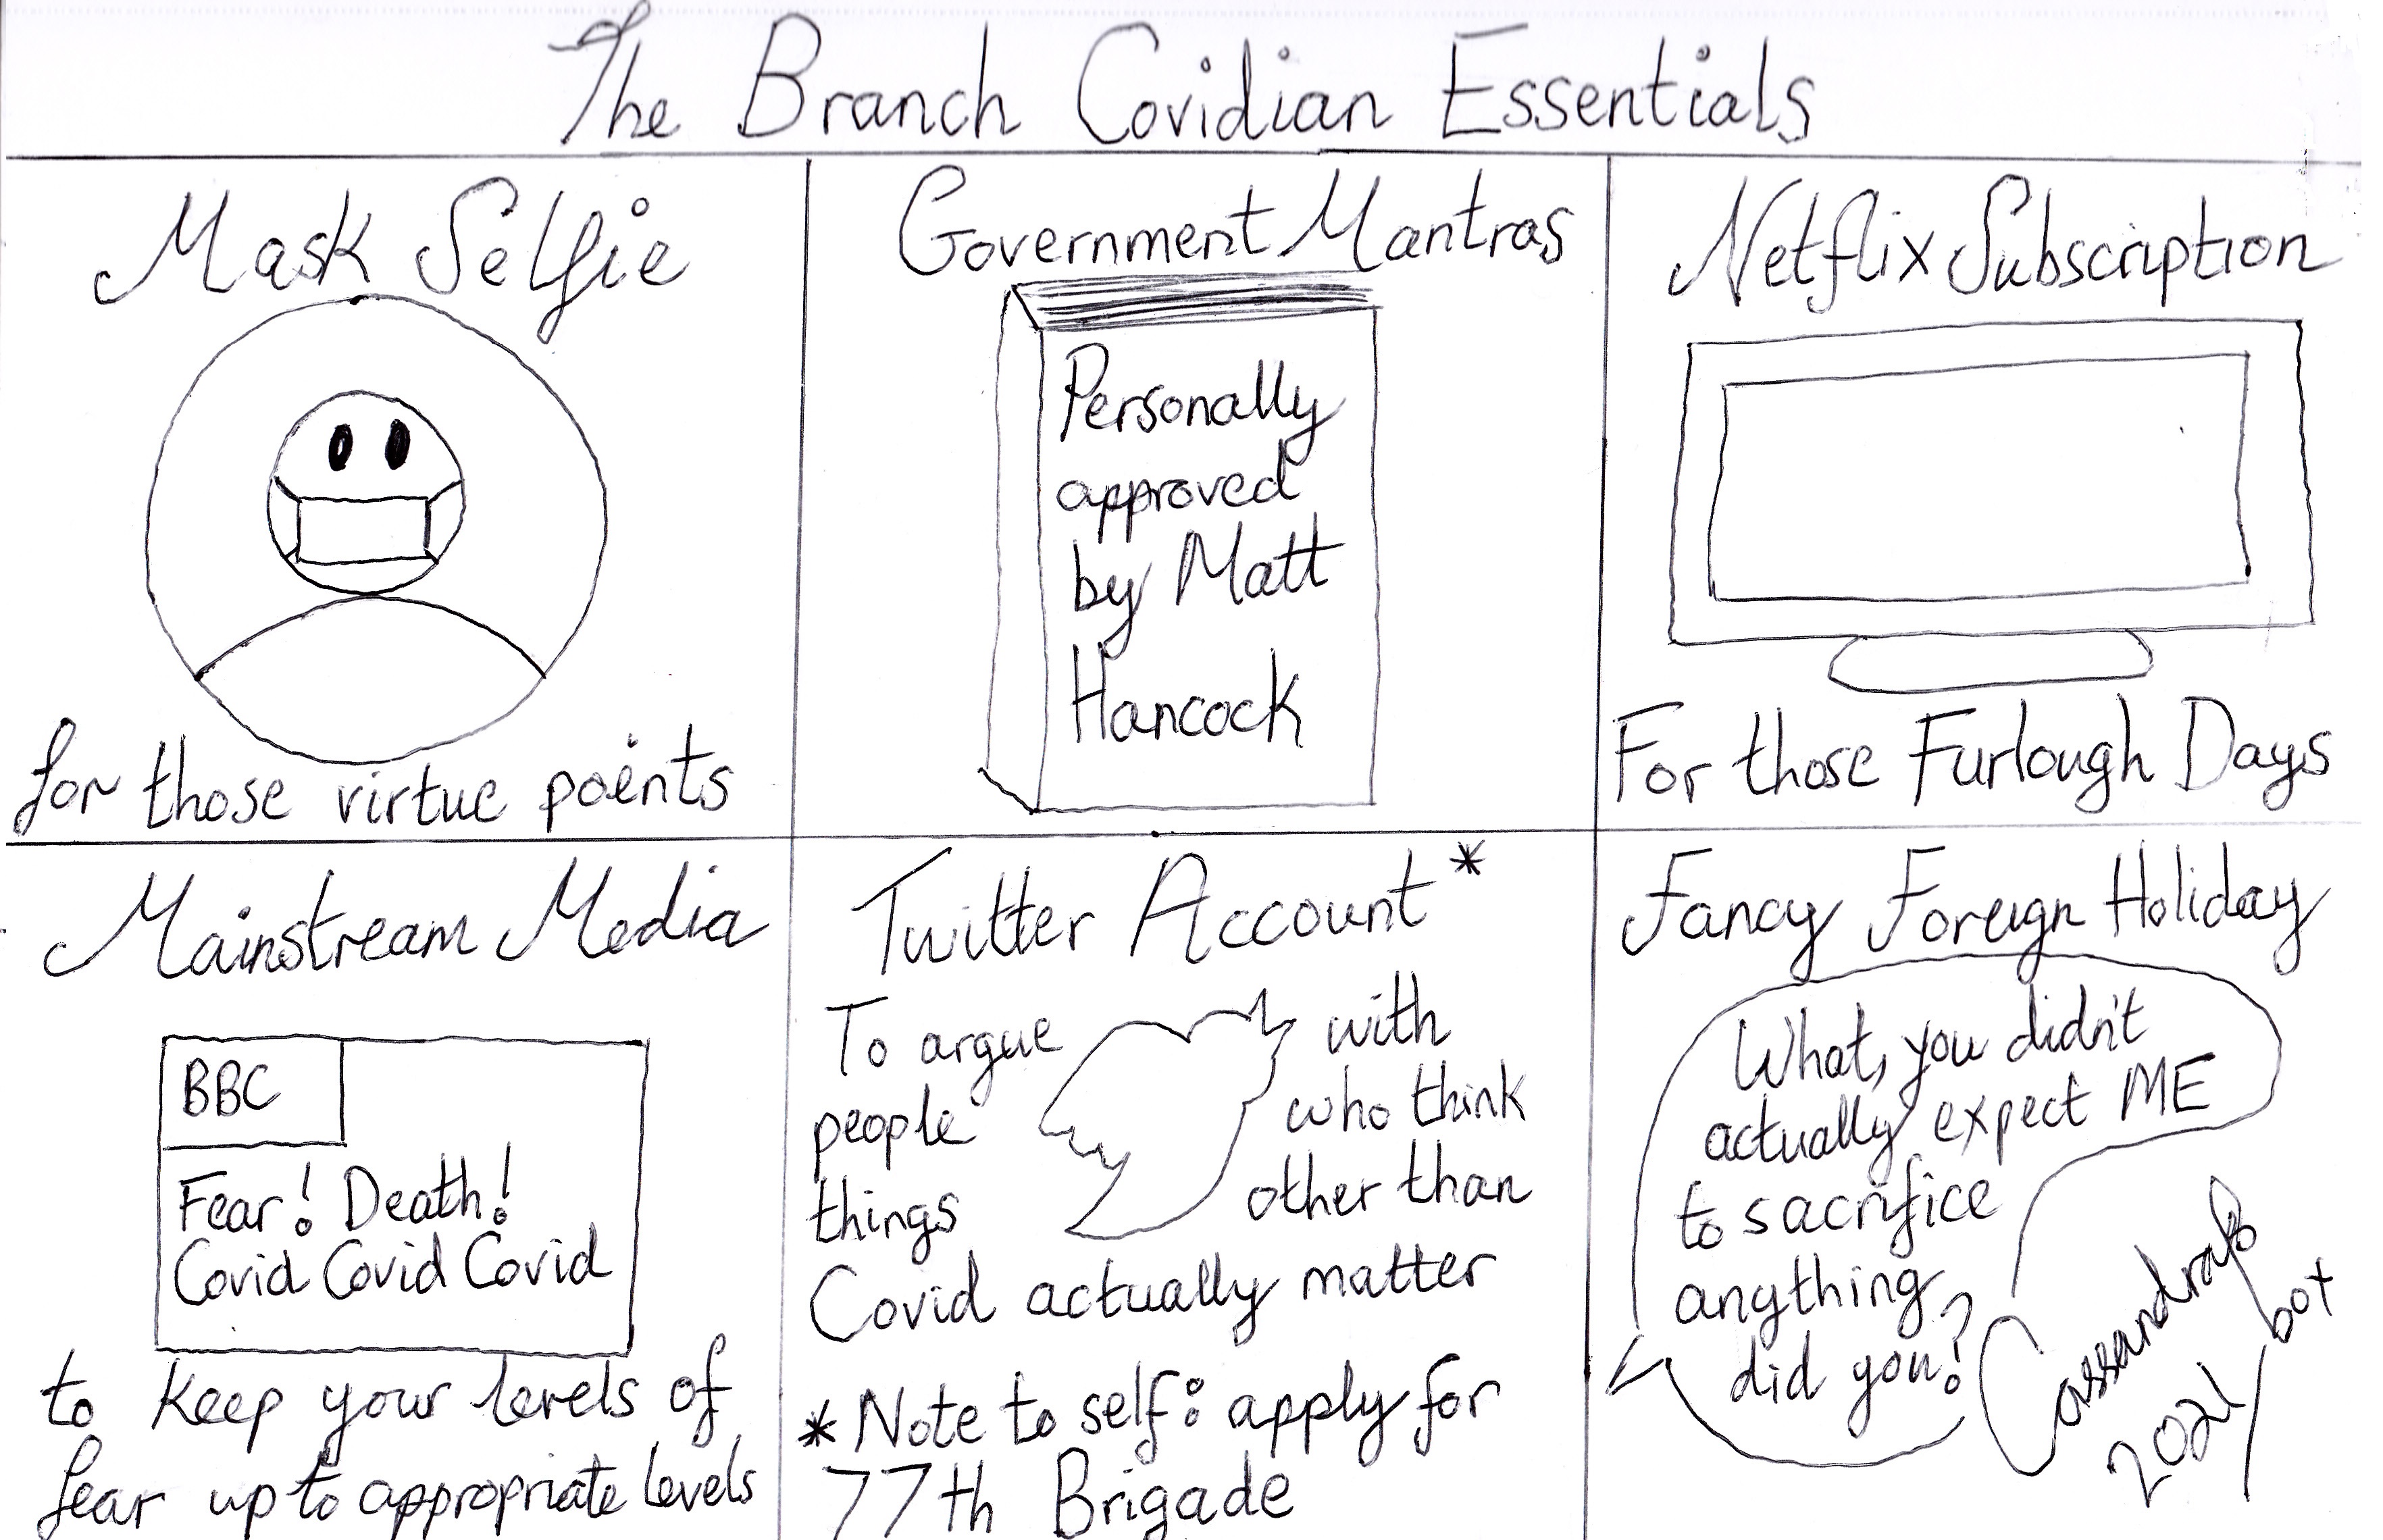 The Branch Covidian Essentials
Mask Selfie
for those virtue points
Government Mantras
Personally
approved
by Matt
Hancock
Netflix Subscription
For those Furlough Days
Mainstream Media
BBC
Fear! Death!
Covid Covid Covid
to keep your levels of
fear up to appropriate levels
Twitter Account*
To argue with
people who think
things other than
Covid actually matter
*Note to self: apply for
77th Brigade
Fancy Foreign Holiday
What, you didn't
actually expect ME
to sacrifice
anything
did you?!
2021
bot